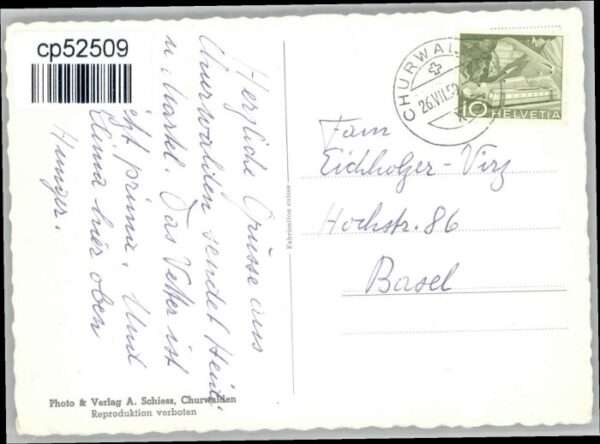 cp52509
Herzliche Grüsse aus
Churwalden sendet Heidi
u. Markl. Das Wetter ist
jetzt prima. Und
Klima hier oben
Hunger.
Fabrication suisse
Photo & Verlag A. Schiess, Churwalden
Reproduktion verboten
CHURWAL
26.VII.5
10 HELVETIA
Fam
Eichholzer-Virz
Hochstr. 86
Basel